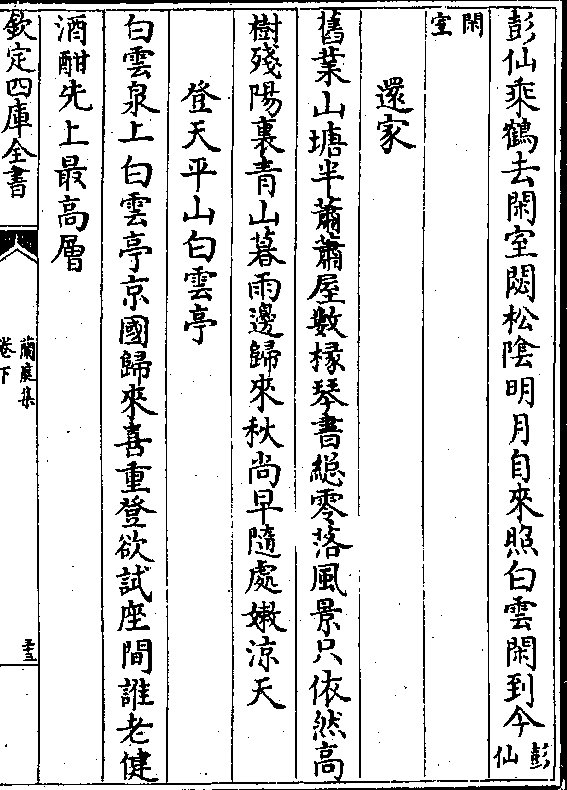 彭仙乘鶴去閑室閟松陰明月自來照白雲閑到今彭仙
閑室
還家
舊業山塘半蕭蕭屋數椽琴書緫零落風景只依然高
樹殘陽裏青山暮雨邊歸來秋尚早隨處嫩涼天
登天平山白雲亭
白雲泉上白雲亭京國歸來喜重登欲試座間誰老健
酒酣先上最高層
欽定四庫全書
蘭庭集
卷下